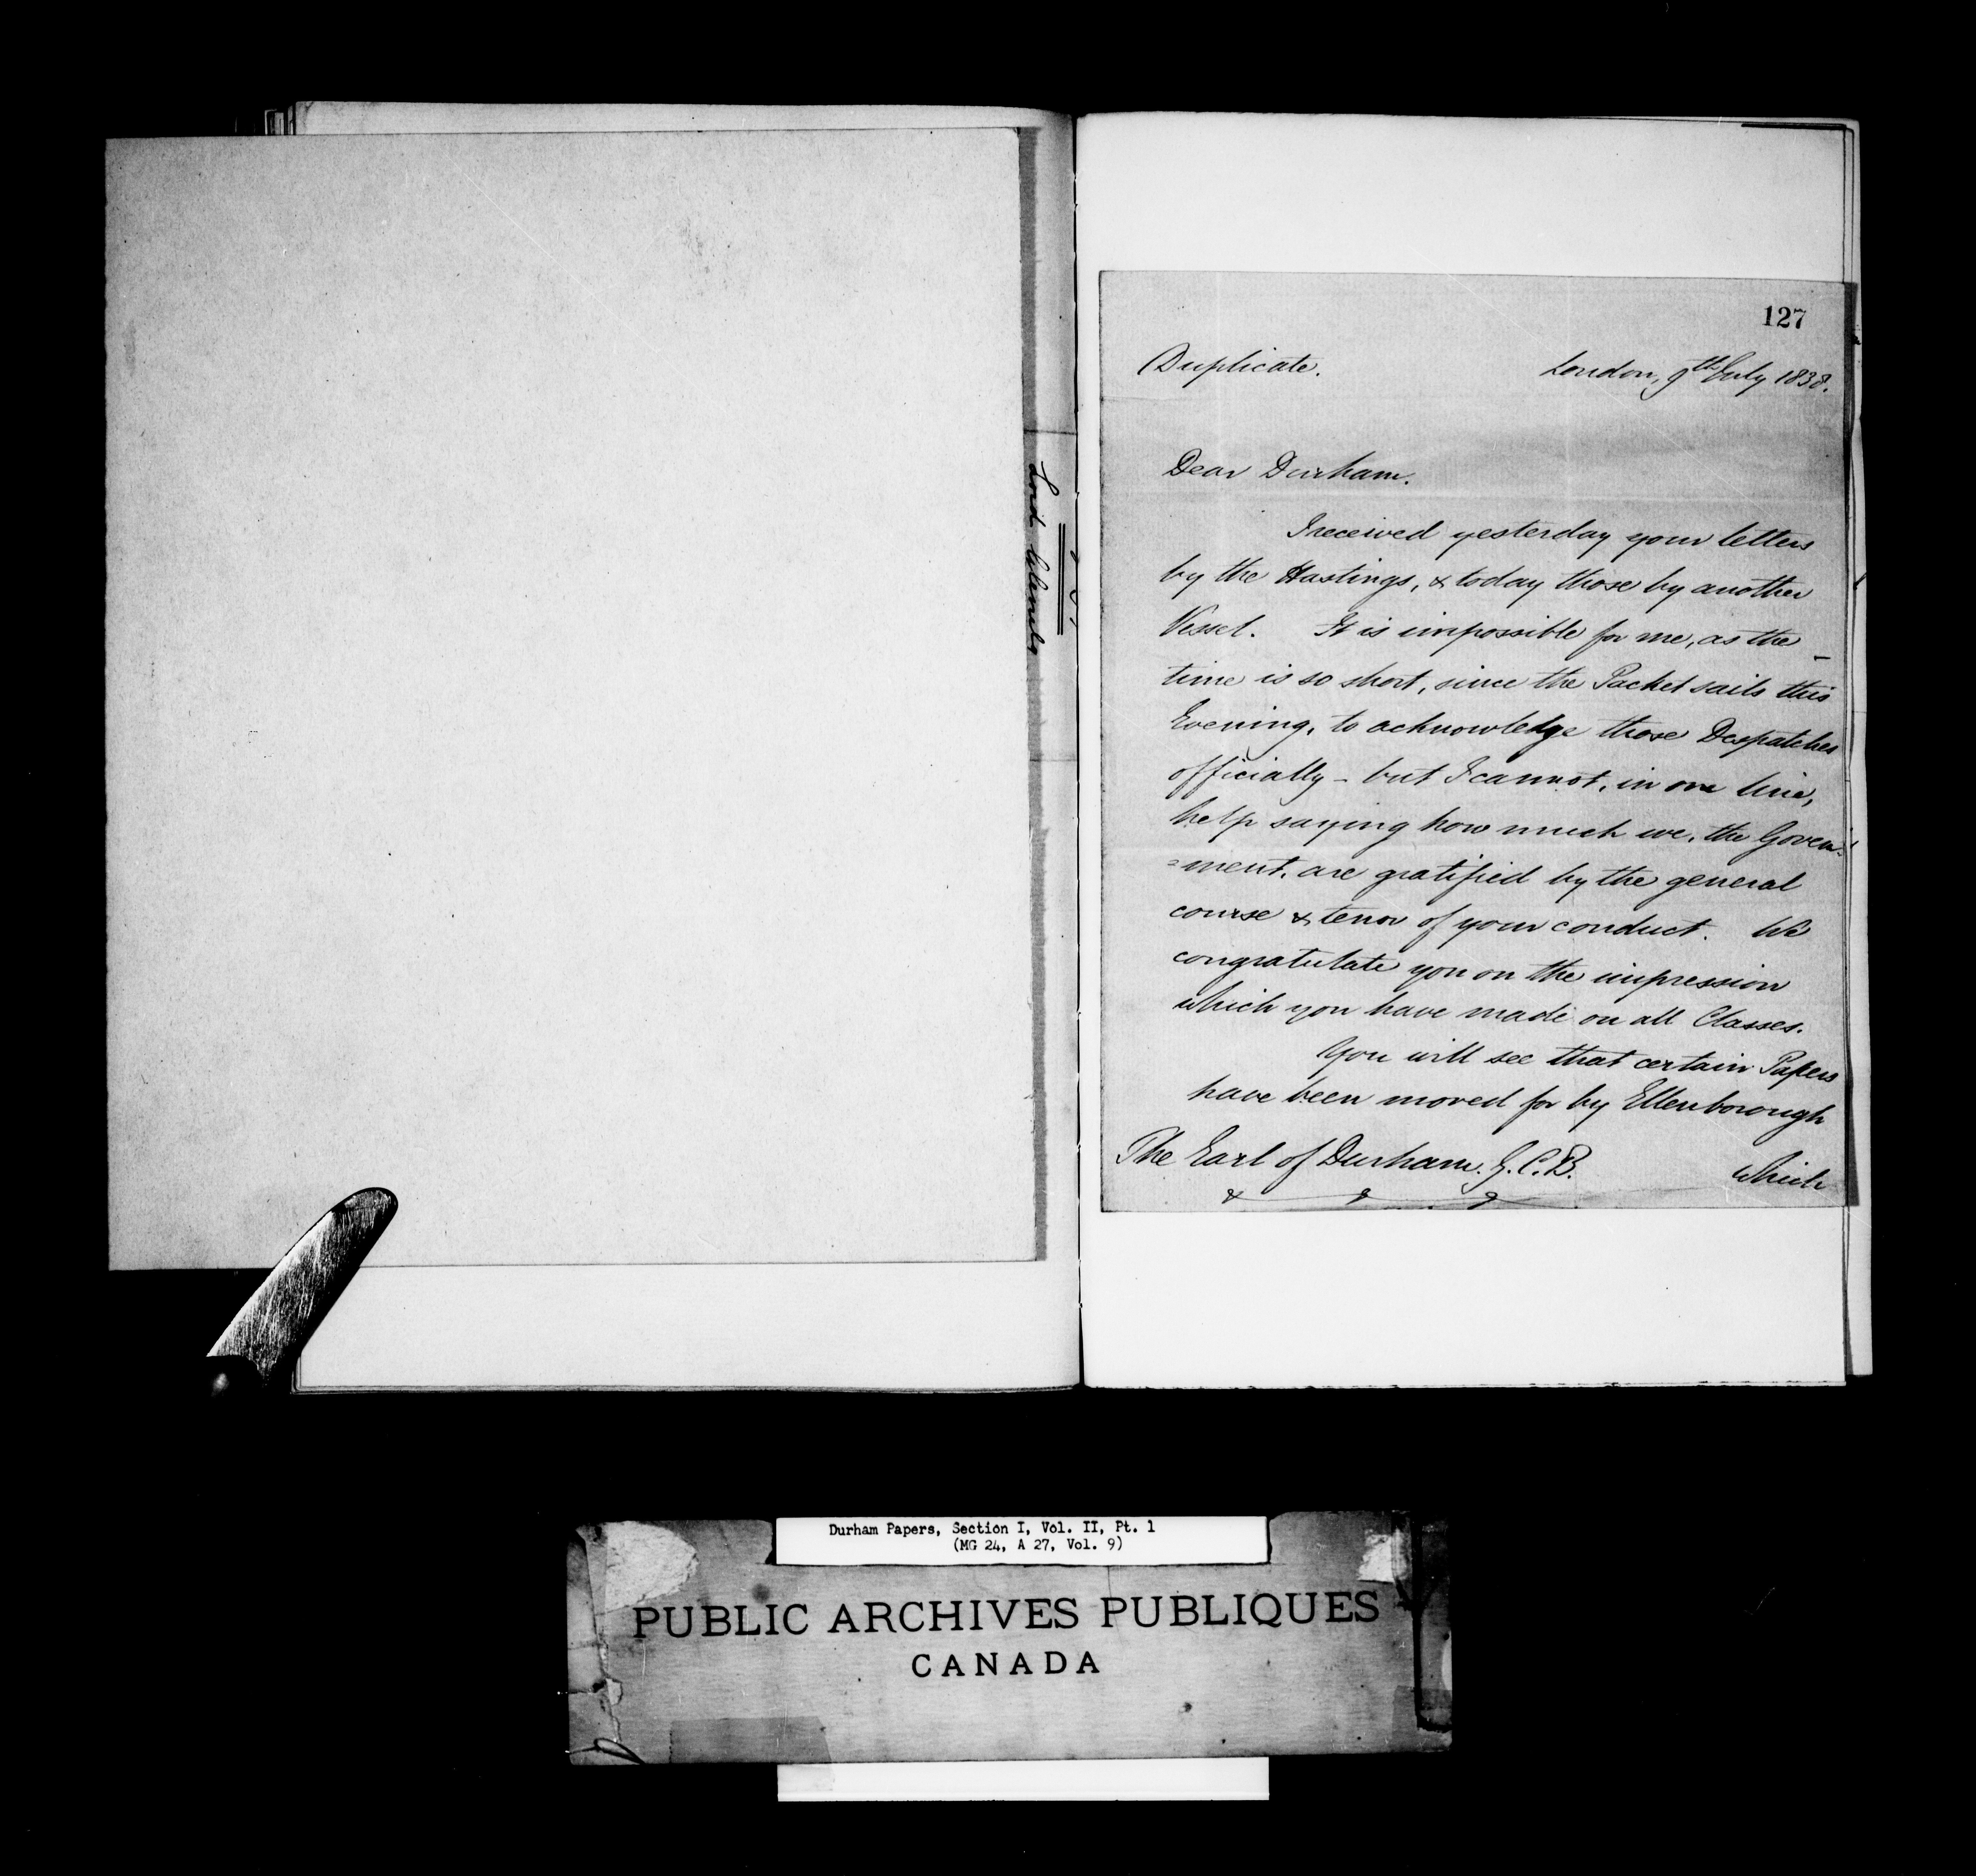 127
Duplicate. London, 9th July 1838.
Dear Durham.
I received yesterday your letters
by the Hastings, & today those by another
Vessel. It is impossible for me, as the
time is so short, since the Packet sails this
Evening, to acknowledge those Despatches
officially - but I cannot, in one line,
help saying how much we, the Govern-
=ment, are gratified by the general
course & tenor of your conduct. We
congratulate you on the impression
which you have made on all Classes.
You will see that certain Papers
have been moved for by Ellenborough
The Earl of Durham. G.C.B. which
Lord
Durham Papers, Section I, Vol. II, Pt. 1
(MG 24, A 27, Vol. 9)
PUBLIC ARCHIVES PUBLIQUES
CANADA